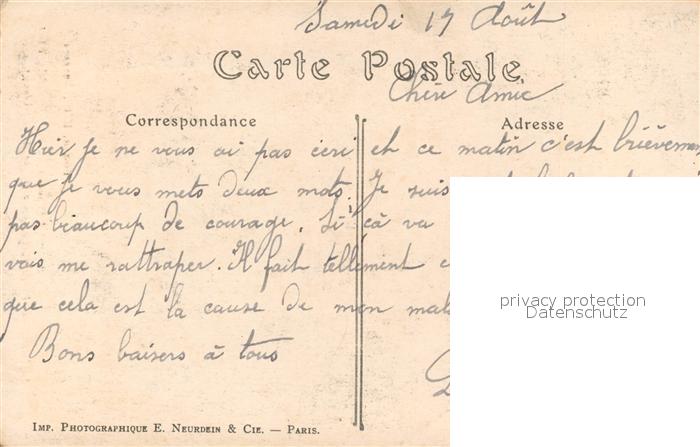 Samedi 17 Août
Carte Postale
Chère Amie
Correspondance
Adresse
Hier je ne vous ai pas écri et ce matin c'est brièvemen
que je vous mets deux mots. Je suis
pas beaucoup de courage. Si çà va
vais me rattraper. Il fait tellement
que cela est la cause de mon mal
Bons baisers à tous
privacy protection
Datenschutz
IMP. PHOTOGRAPHIQUE E. NEURDEIN & CIE. — PARIS.